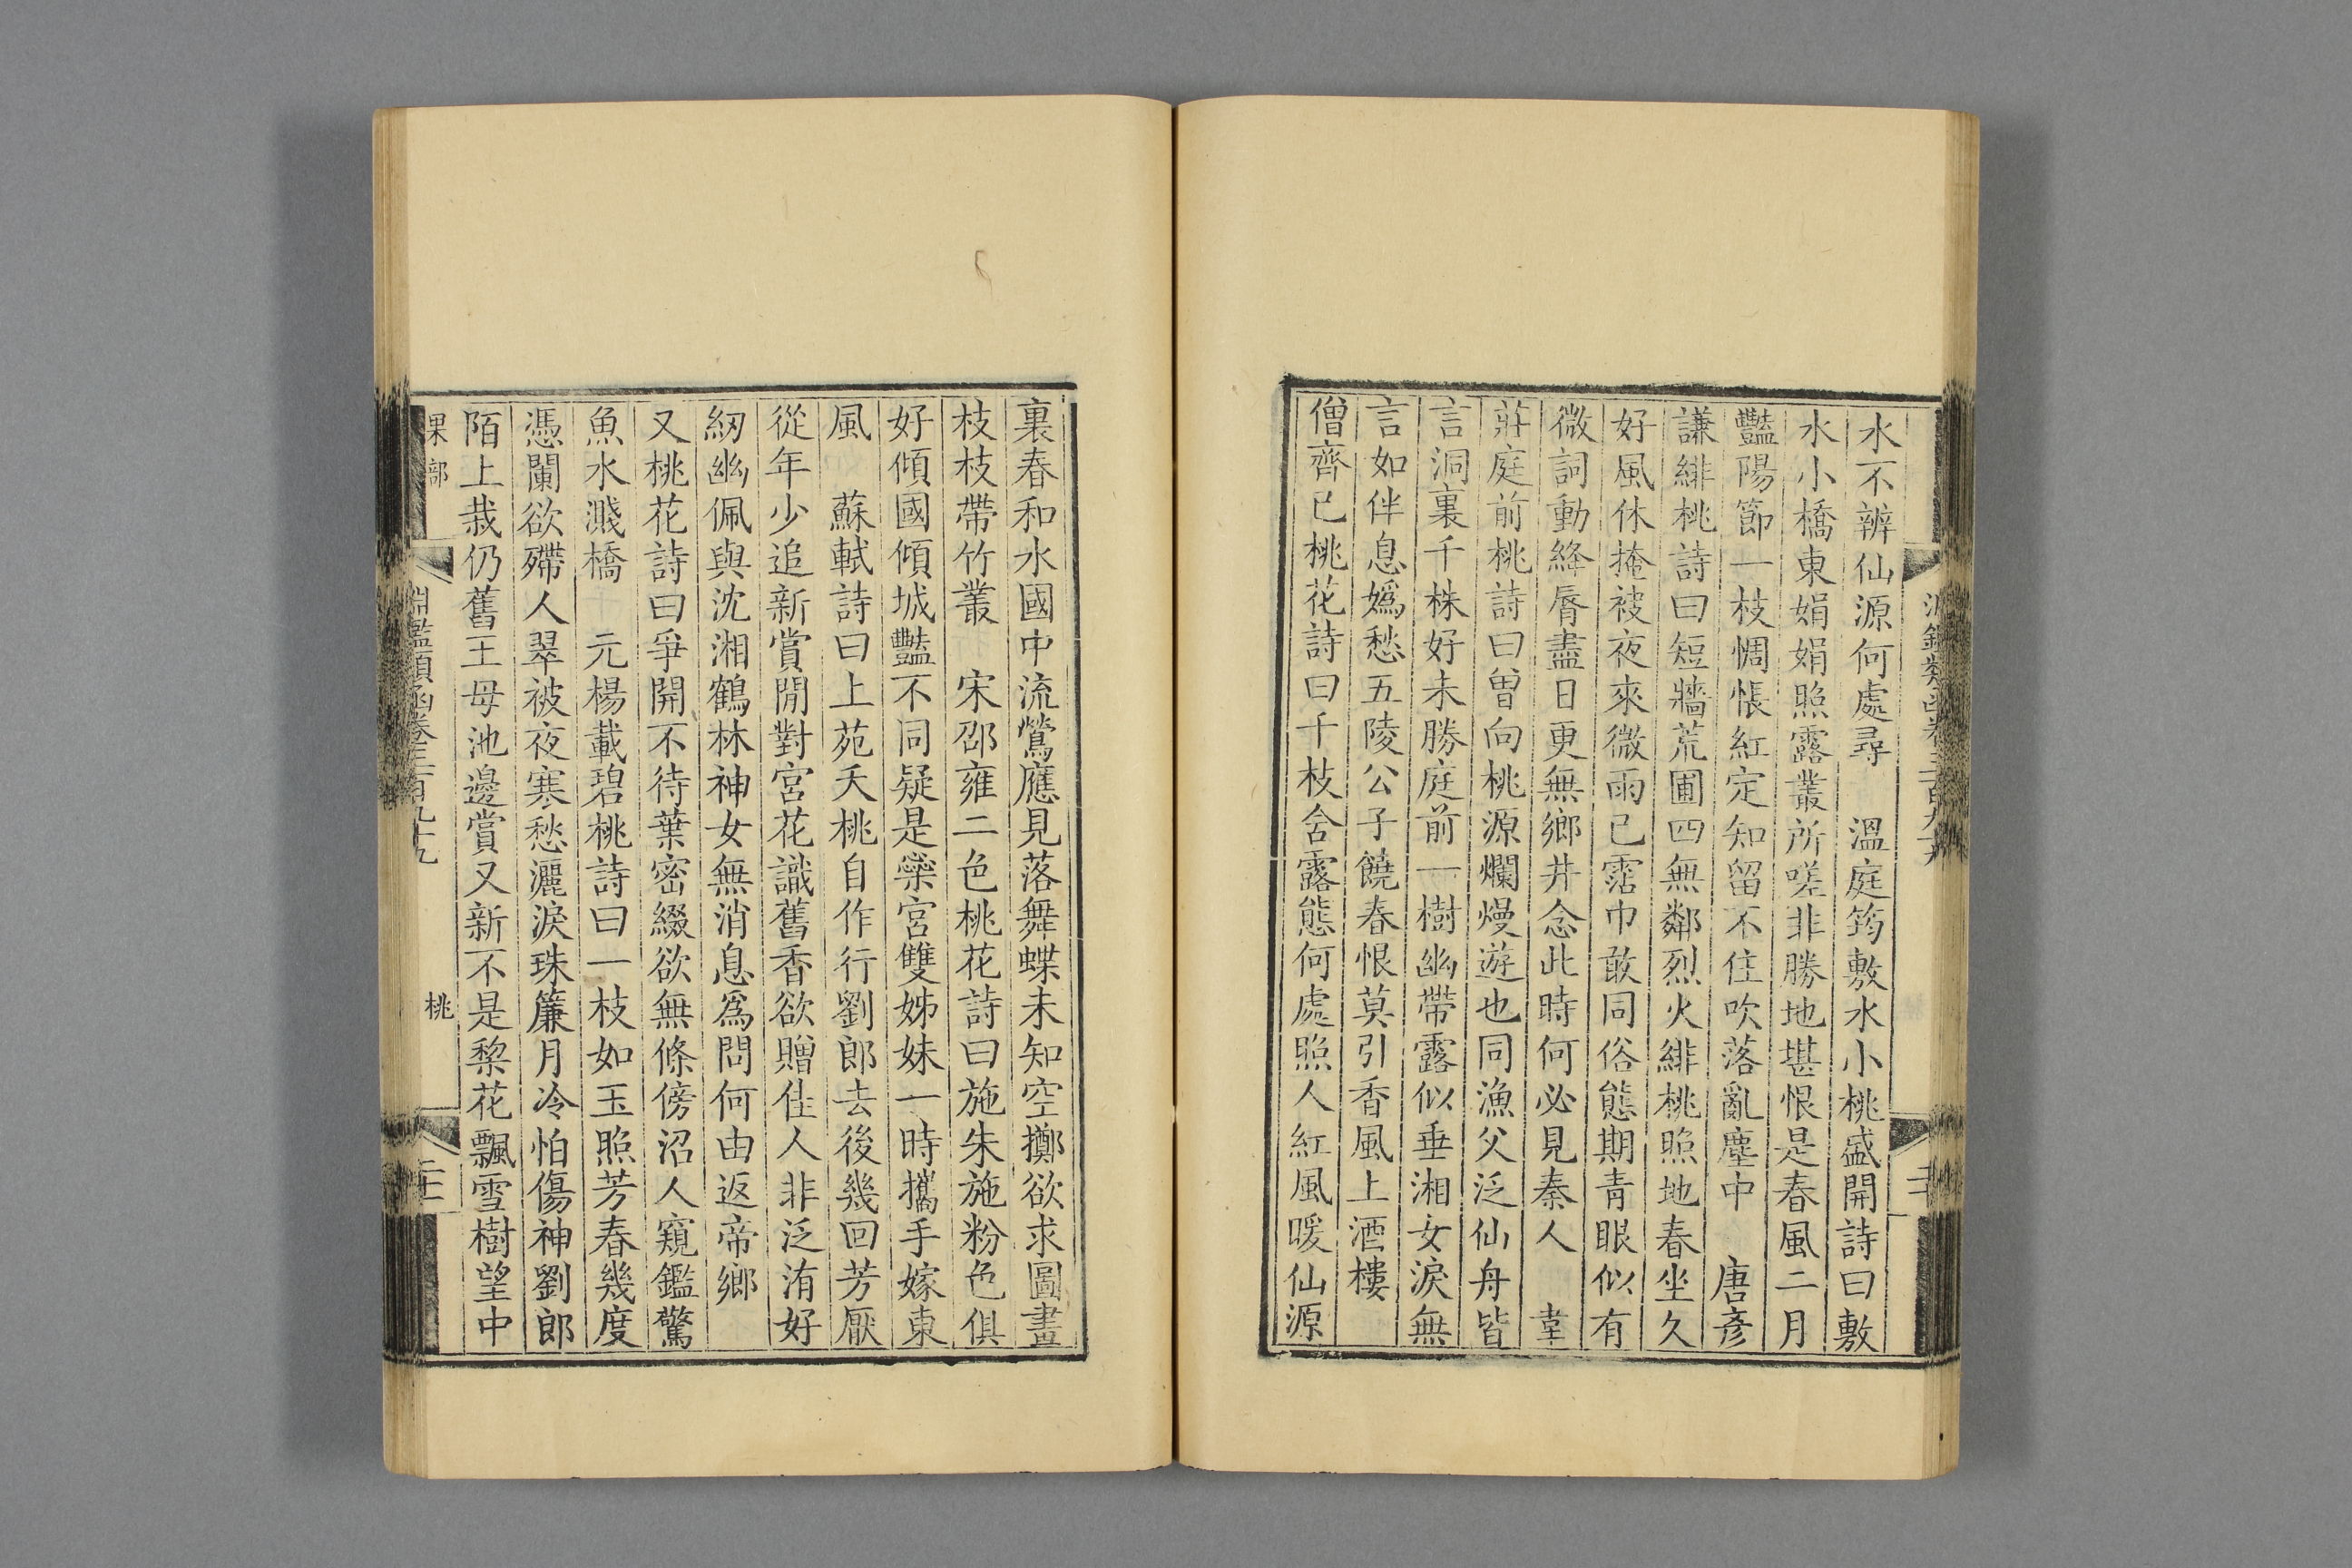 水不辨仙源何處尋　溫庭筠敷水小桃盛開詩曰敷
水小橋東娟娟照露叢所嗟非勝地堪恨是春風二月
豔陽節一枝惆悵紅定知留不住吹落亂塵中　唐彥
謙緋桃詩曰短牆荒圃四無鄰烈火緋桃照地春坐久
好風休掩袂夜來微雨已霑巾敢同俗態期青眼似有
微詞動絳脣盡日更無鄉井念此時何必見秦人　韋
莊庭前桃詩曰曾向桃源爛熳遊也同漁父泛仙舟皆
言洞裏千株好未勝庭前一樹幽帶露似垂湘女淚無
言如伴息嬀愁五陵公子饒春恨莫引香風上酒樓
僧齊已桃花詩曰千枝含露態何處照人紅風暖仙源
裏春和水國中流鶯應見落舞蝶未知空擲欲求圖畫
枝枝帶竹叢　宋邵雍二色桃花詩曰施朱施粉色俱
好傾國傾城豔不同疑是蘂宮雙姊妹一時攜手嫁東
風　蘇軾詩曰上苑夭桃自作行劉郎去後幾回芳厭
從年少追新賞閒對宮花識舊香欲贈佳人非泛洧好
紉幽佩與沈湘鶴林神女無消息爲問何由返帝鄉
又桃花詩曰爭開不待葉密綴欲無條傍沼人窺鑑驚
魚水濺橋　元楊載碧桃詩曰一枝如玉照芳春幾度
憑闌欲殢人翠被夜寒愁灑淚珠簾月冷怕傷神劉郎
陌上栽仍舊王母池邊賞又新不是棃花飄雪樹望中
果部
淵鑑類函卷三百九十九
桃